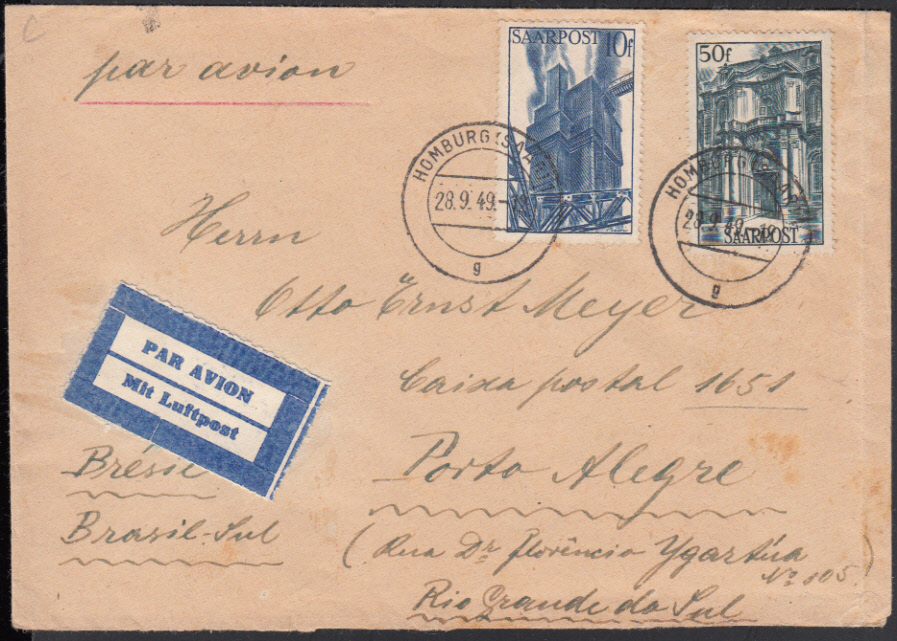 C
par avion
SAARPOST 10f
50f
SAARPOST
HOMBURG (SAAR)
28.9.49.-18
g
HOMBURG (SAAR)
28.9.49.-18
g
Herrn
Otto Ernst Meyer
Caixa postal 1651
Porto Alegre
(Rua Dr Florêncio Ygartúa
Nº 105)
Rio Grande do Sul
PAR AVION
Mit Luftpost
Brésil
Brasil-Sul